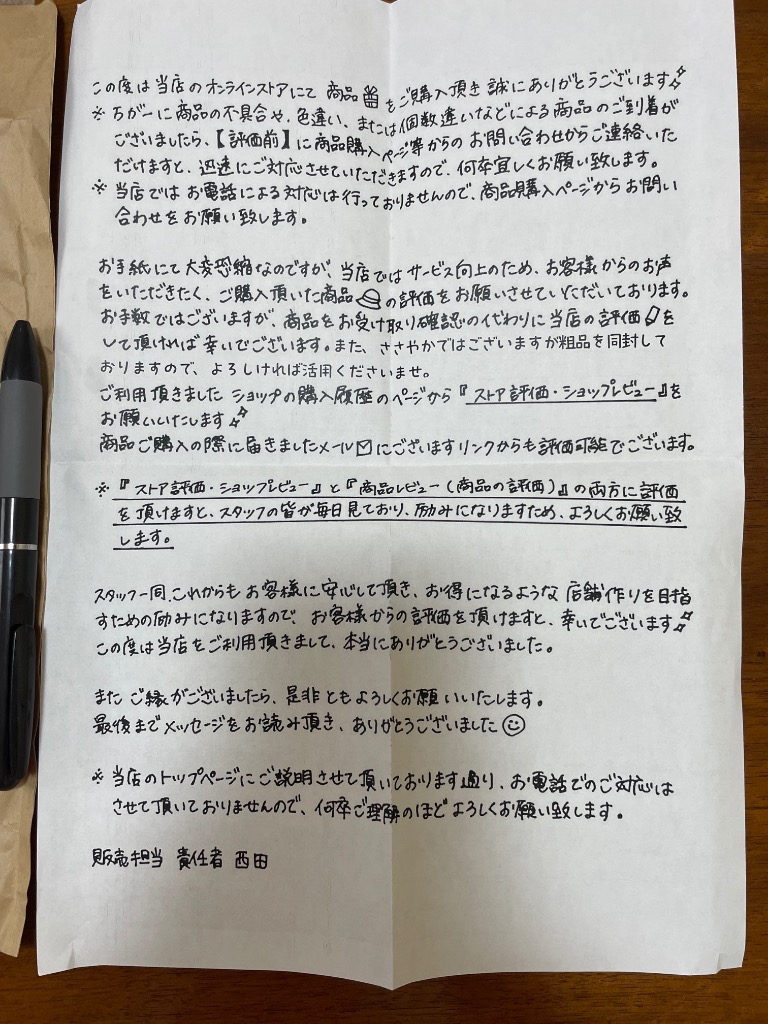 この度は当店のオンラインストアにて 商品をご購入頂き 誠にありがとうございます
※ 万が一に商品の不具合や、色違い、または個数違いなどによる商品のご到着が
ございましたら、【評価前】に商品購入ページ等からのお問い合わせからご連絡いた
だけますと、迅速にご対応させていただきますので、何卒宜しくお願い致します。
※ 当店ではお電話による対応は行っておりませんので、商品購入ページからお問い
合わせをお願い致します。
お手紙にて大変恐縮なのですが、当店ではサービス向上のため、お客様からのお声
をいただきたく、ご購入頂いた商品の評価をお願いさせていただいております。
お手数ではございますが、商品をお受け取り確認の代わりに当店の評価を
して頂ければ幸いでございます。また、ささやかではございますが粗品を同封して
おりますので、よろしければ活用くださいませ。
ご利用頂きました ショップの購入履歴のページから『ストア評価・ショップレビュー』を
お願いいたします
商品ご購入の際に届きましたメールにございますリンクからも評価可能でございます。
※『ストア評価・ショップレビュー』と『商品レビュー(商品の評価)』の両方に評価
を頂けますと、スタッフの皆が毎日見ており、励みになりますため、よろしくお願い致
します。
スタッフ一同、これからもお客様に安心して頂き、お得になるような店舗作りを目指
すための励みになりますので、お客様からの評価を頂けますと、幸いでございます
この度は当店をご利用頂きまして、本当にありがとうございました。
またご縁がございましたら、是非ともよろしくお願いいたします。
最後までメッセージをお読み頂き、ありがとうございました
※ 当店のトップページにご説明させて頂いております通り、お電話でのご対応は
させて頂いておりませんので、何卒ご理解のほどよろしくお願い致します。
販売担当 責任者 西田